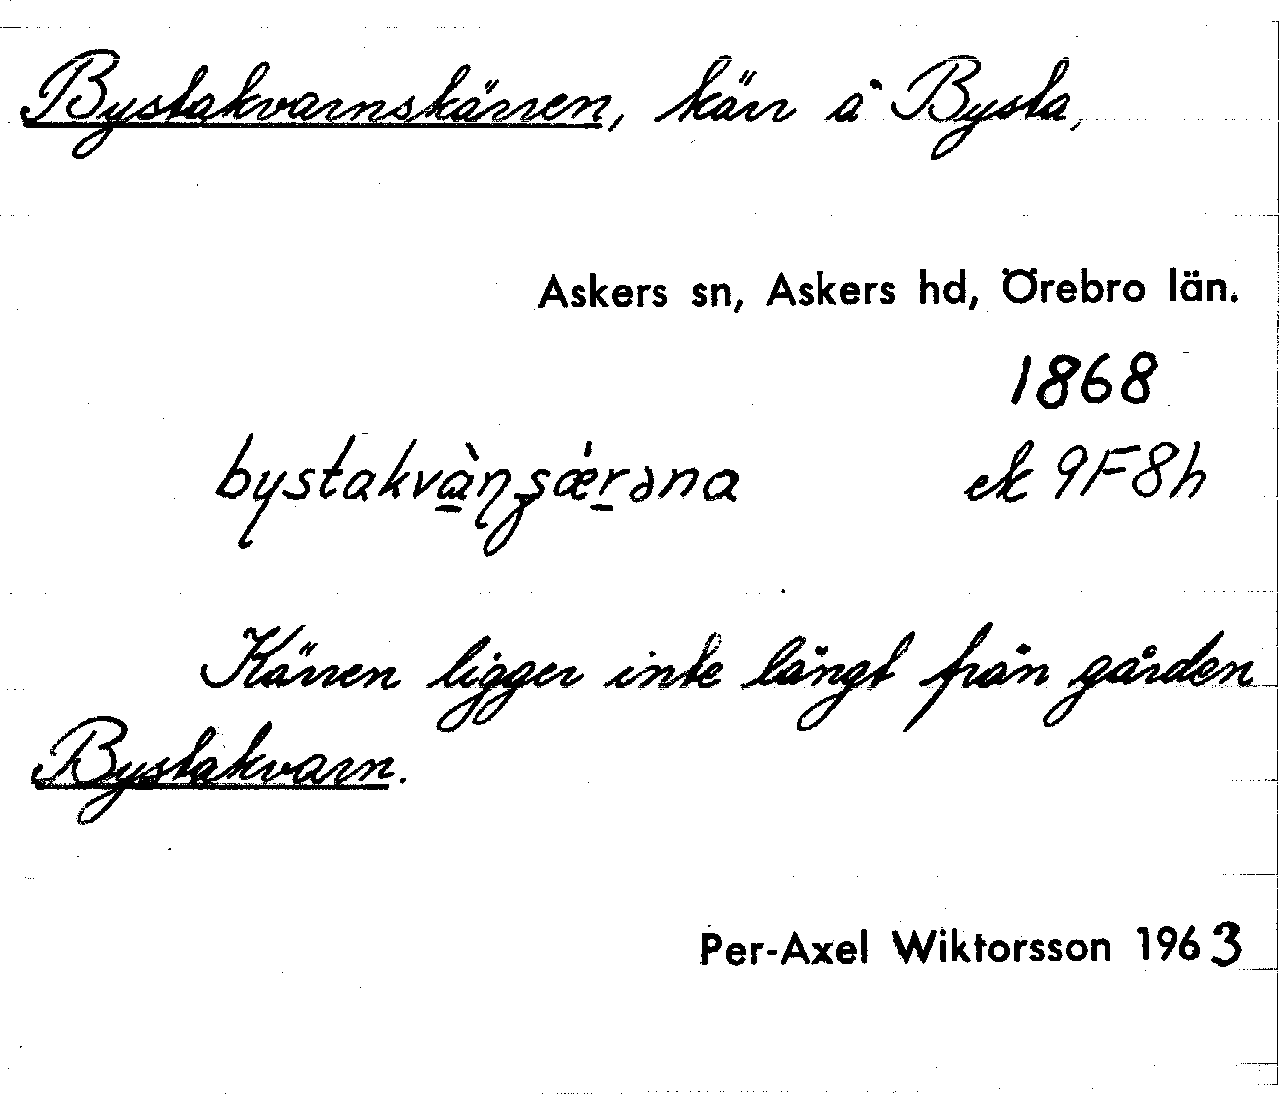 Bystakvarnskärren, kärr å Bysta,
Askers sn, Askers hd, Örebro län.
1868
bystakvàṇʂǽrəna ek 9F8h
Kärren ligger inte långt från gården
Bystakvarn.
Per-Axel Wiktorsson 1963